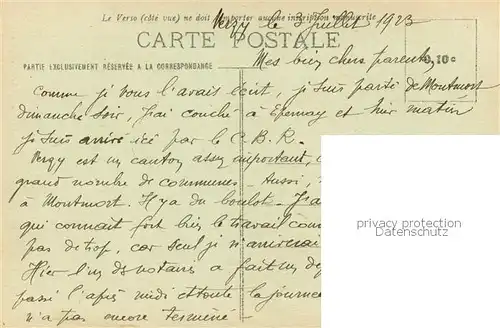 Le Verso (côté vue) ne doit comporter aucune inscription manuscrite
Vergy le 3 Juillet 1923
CARTE POSTALE
0,10c
PARTIE EXCLUSIVEMENT RÉSERVÉE A LA CORRESPONDANCE
Mes bien chers parents,
Comme je vous l'avais écrit, je suis parti de Montmort
dimanche soir, j'ai couché à Epernay et hier matin
je suis arrivé ici par le C.B.R.
Vergy est un canton assez important,
grand nombre de communes - Aussi,
à Montmort. Il y a du boulot - J'ai
qui connait fort bien le travail
pas de trop, car seul je n'
Hier l'un des notaires a fait un
passé l'après midi et toute la journée
n'a pas encore terminé -
privacy protection
Datenschutz